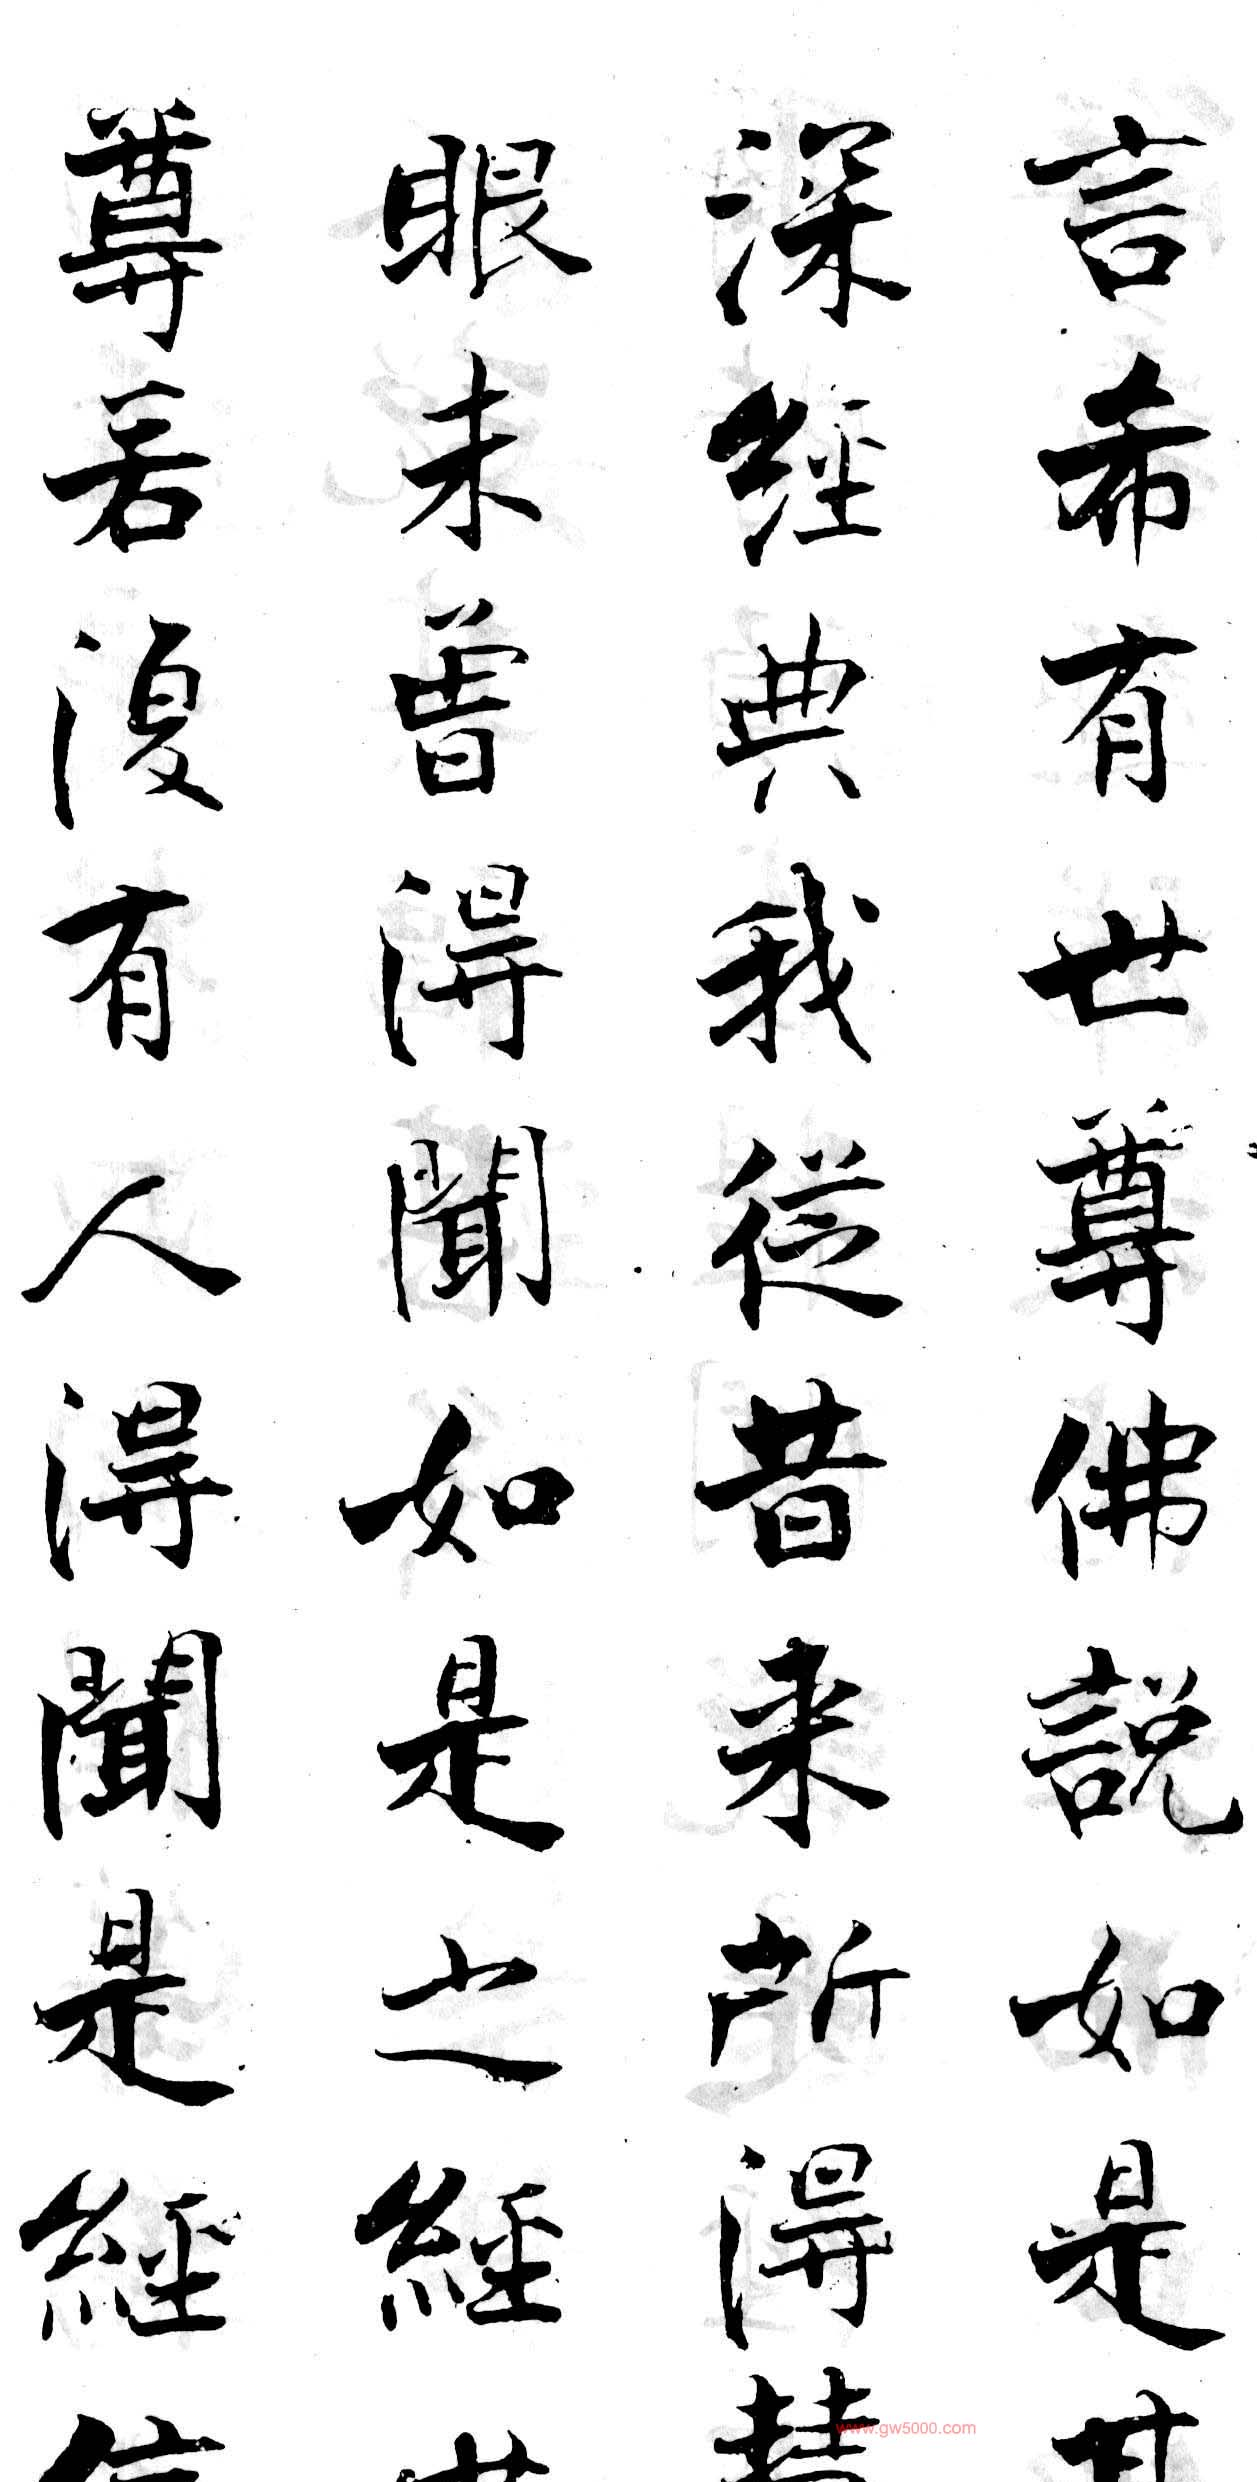 言希有世尊佛說如是甚
深經典我從昔来所得慧
眼未曾得聞如是之經世
尊若復有人得聞是經信
www.gw5000.com